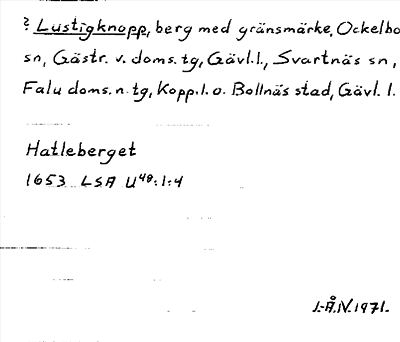 ? Lustigknopp, berg med gränsmärke, Ockelbo
sn, Gästr. v. doms. tg, Gävl.l., Svartnäs sn,
Falu doms. n. tg, Kopp.l. o. Bollnäs stad, Gävl. l.
Hatleberget
1653 LSA U48:1:4
I.Å.N.1971.